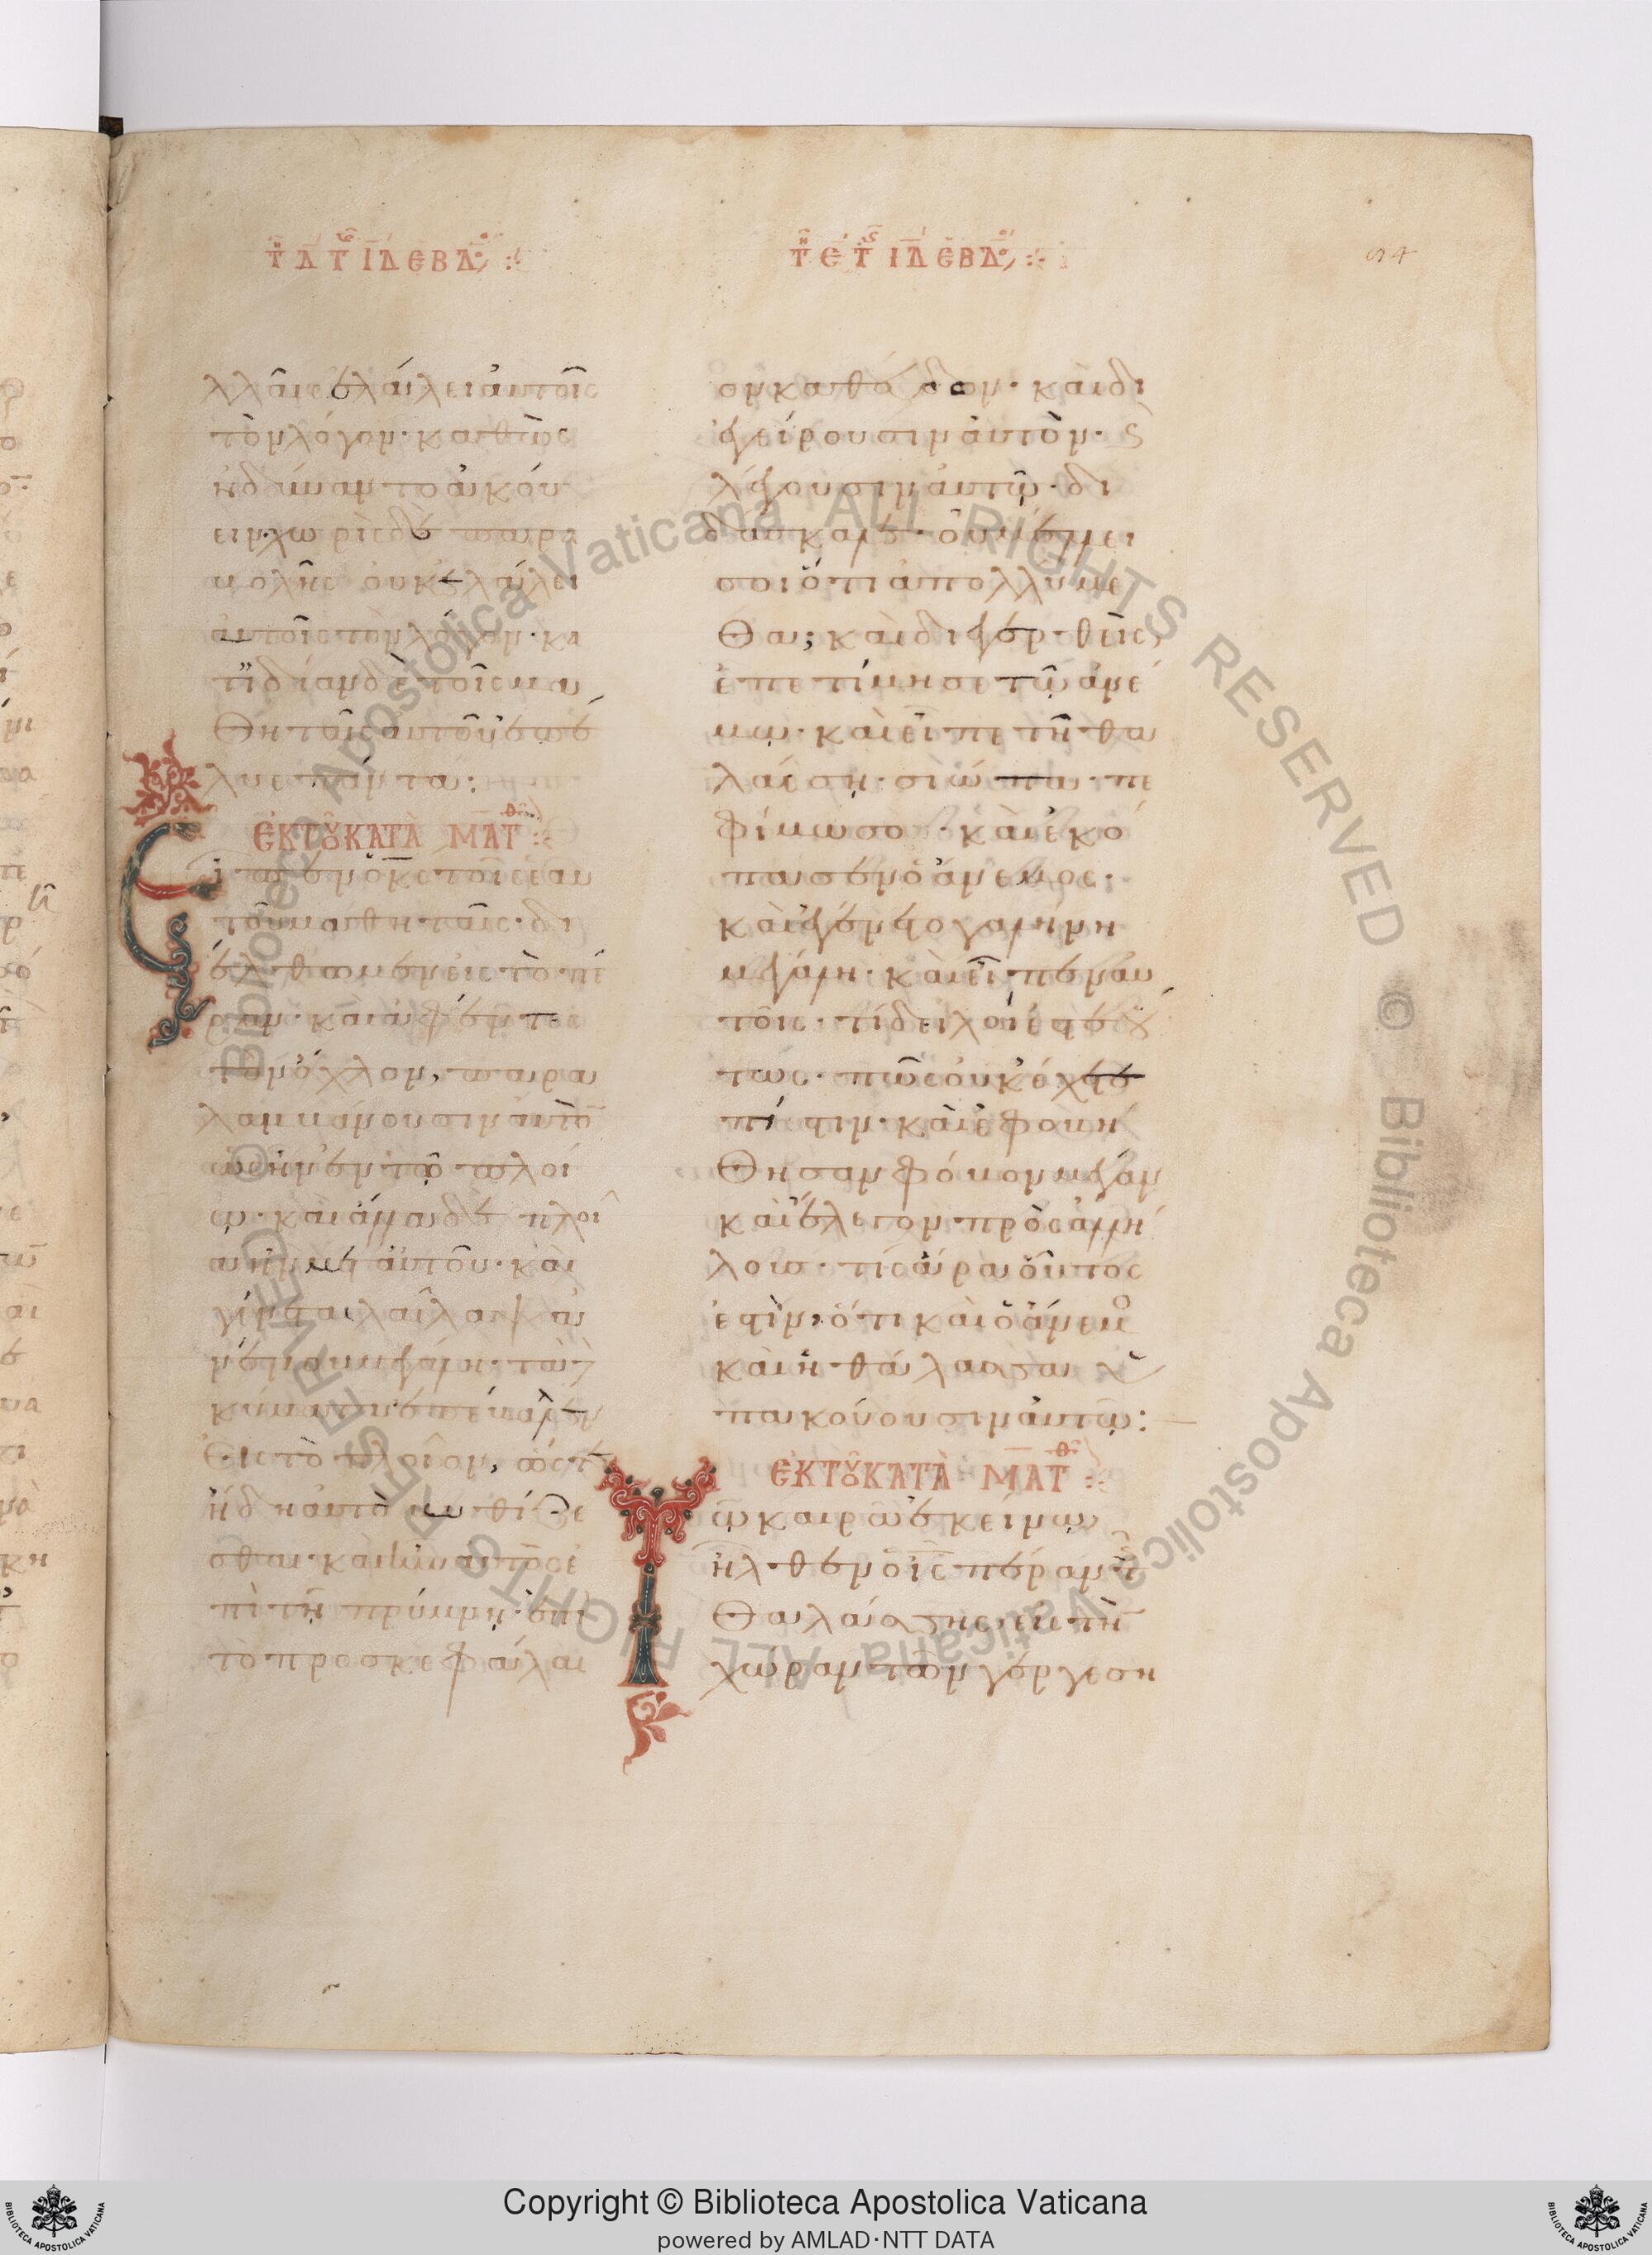 τῇ δ τῆς ιδ εβδ:
λλαῖς ἐλάλει αὐτοῖς
τὸν λόγον· καθὼς
ἠδύναντο ἀκού
ειν· χωρὶς δὲ παρα
βολῆς οὐκ ἐλάλει
αὐτοῖς τὸν λόγον· κα
τϊδίαν δὲ τοῖς μα
θηταῖς αὐτοῦ ἐπέ
λυε πάντα:
ἐκ τοῦ κατὰ ματθ:
ἶπεν ὁ κς τοῖς ἑαυ
τοῦ μαθηταῖς· δι
έλθωμεν εἰς τὸ πέ
ραν· καὶ ἀφέντες
τὸν ὄχλον, παρα
λαμβάνουσιν αὐτὸ
ὡς ἦν ἐν τῷ πλοί
ῳ· καὶ ἄλλα δὲ πλοῖ
α ἦν μετ αὐτοῦ· καὶ
γίνεται λαῖλαψ ἀ
νέμου μεγάλη· τὰ δὲ
κύματα ἐπέβαλλεν
εἰς τὸ πλοῖον, ὥστε
ἤδη αὐτὸ βυθίζε
σθαι· καὶ ἦν αὐτὸς ἐ
πὶ τῇ πρύμνῃ· ἐπὶ
τὸ προσκεφάλαι
τῇ ε τῆς ιδ εβδ:
ον καθεύδων· καὶ δι
εγείρουσιν αὐτὸν· καὶ
λέγουσιν αὐτῷ· δι
δάσκαλε· οὐ μέλει
σοι ὅτι ἀπολλύμε
θα; καὶ διεγερθεὶς
ἐπετίμησε τῷ ἀνέ
μῳ· καὶ εἶπε τῇ θα
λάσσῃ· σιώπα· πε
φίμωσο· καὶ ἐκό
πασεν ὁ ἄνεμος·
καὶ ἐγένετο γαλήνη
μεγάλη· καὶ εἶπεν αὐ
τοῖς· τί δειλοί ἐστε οὕ
τως· πῶς οὐκ ἔχετε
πίστιν· καὶ ἐφοβή
θησαν φόβον μέγαν
καὶ ἔλεγον πρὸς ἀλλή
λους· τίς ἄρα οὗτός
ἐστιν· ὅτι καὶ ὁ ἄνεμος
καὶ ἡ θάλασσα ὑ
πακούουσιν αὐτῷ:
ἐκ τοῦ κατὰ ματθ:
Τῷ καιρῷ ἐκείνῳ
ἦλθεν ὁ ις πέραν τῆς
θαλάσσης· εἰς τὴν
χώραν τῶν γεργεση
Copyright © Biblioteca Apostolica Vaticana
powered by AMLAD·NTT DATA